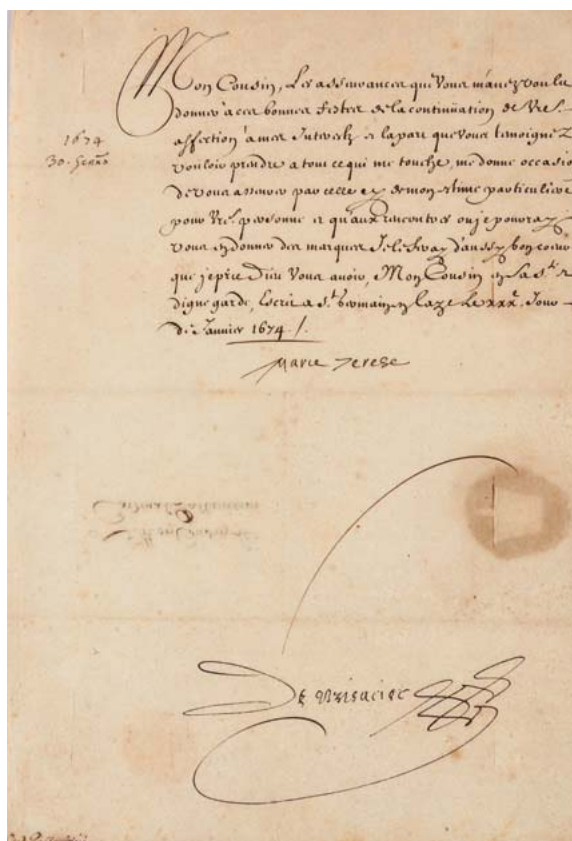 Mon Cousin, Les asseurances que Vous m'avez voulu
donner a ces bonnes festes de la continuation de Vre.
affection a mes Interests et la part que vous temoignez
vouloir prendre a tout ce qui me touche, me donne occasio
de vous asseurer par celle cy de mon estime particuliere
pour Vre. personne et qu'aux rencontres ou je pouray
vous en donner des marques Je le feray d'aussy bon coeur
que je prie Dieu Vous avoir, Mon Cousin en sa ste. et
digne garde, Escrit a St. Germain en Laye Le xxxe. Jour
de Janvier 1674 /.
1674
30. Genno
Marie Terese
Mon Cousin
De Brisacier